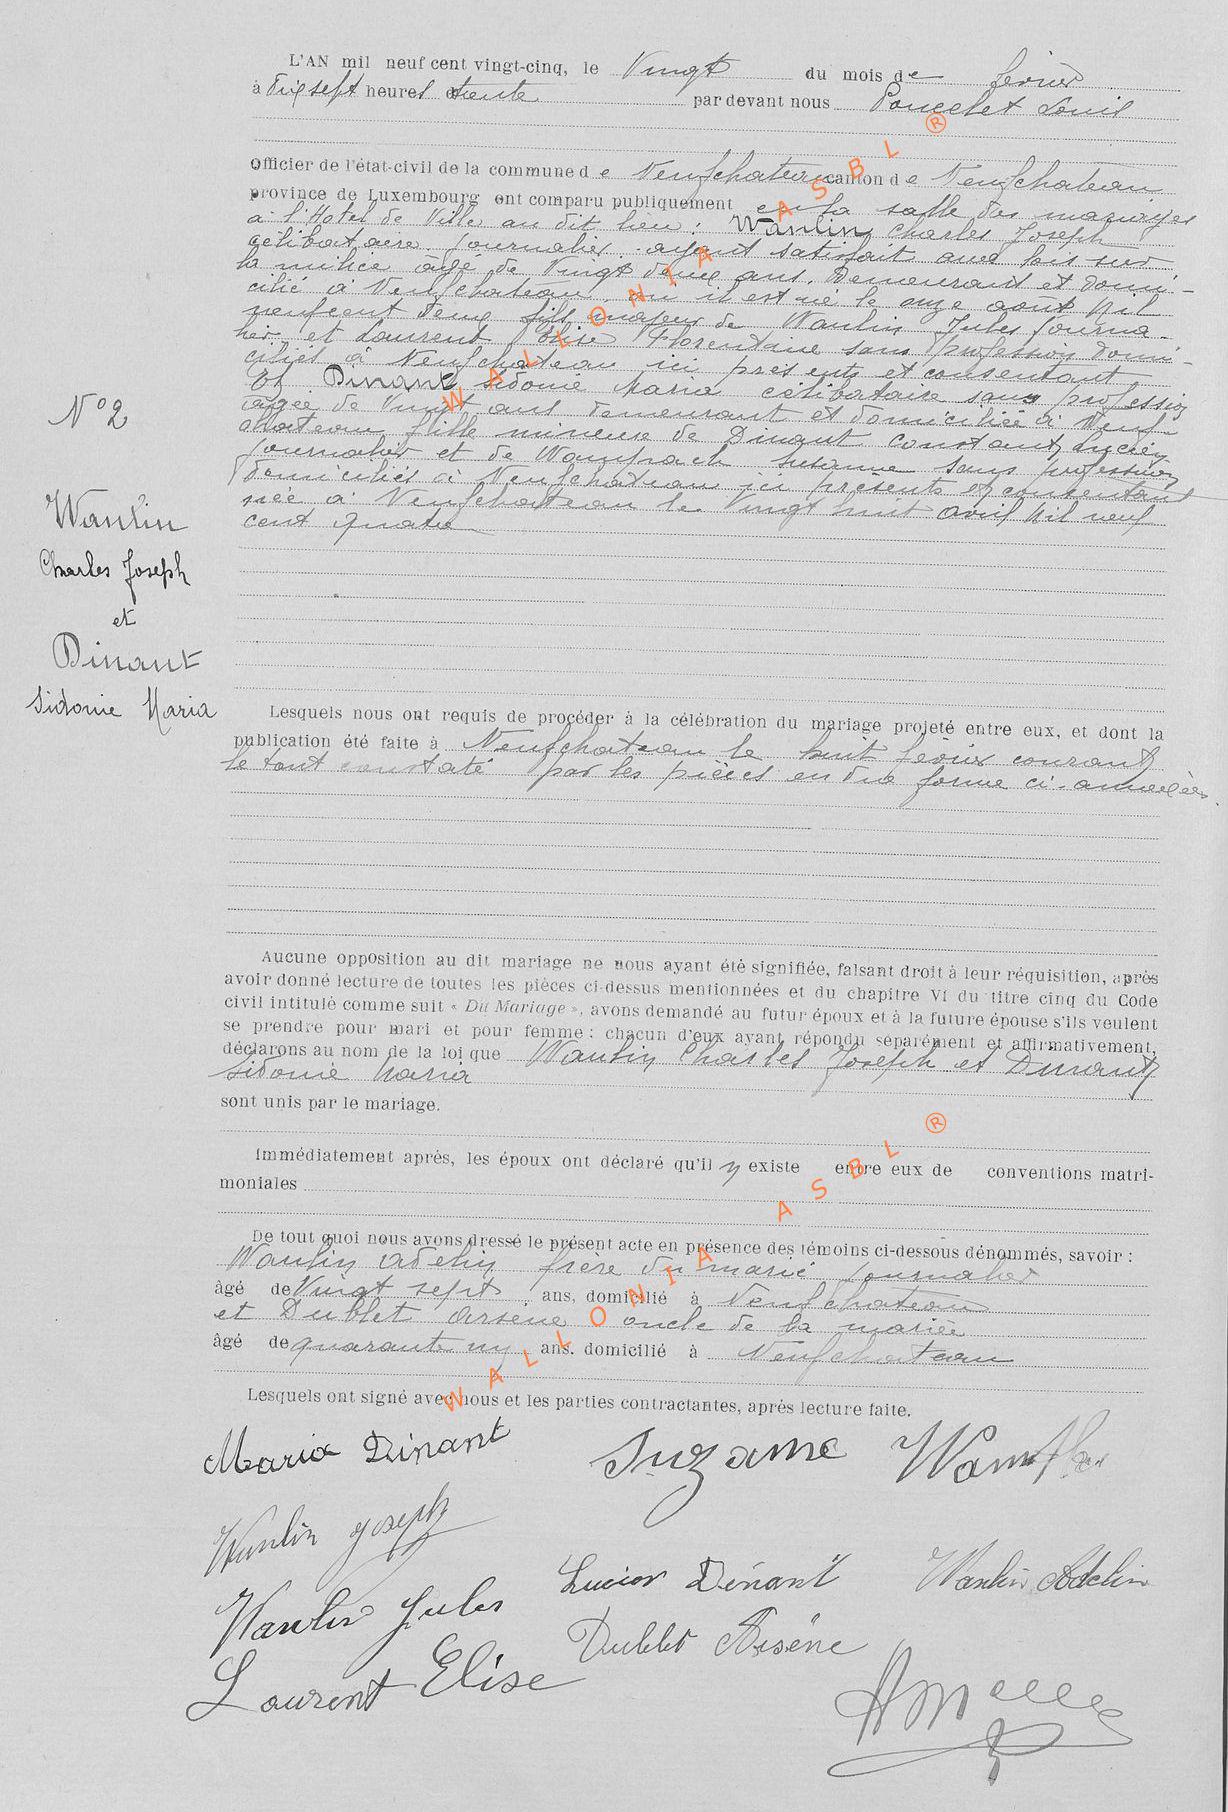 L'AN mil neuf cent vingt-cinq, le Vingt du mois de février
à dix sept heures trente par devant nous Poncelet Louis
Officier de l'état-civil de la commune de Neufchateau canton de Neufchateau
province de Luxembourg ont comparu publiquement en la salle des mariages
a l'Hotel de Ville au dit lieu : Wanlin Charles Joseph
célibataire journalier ayant satisfait aux lois sur
la milice âgé de Vingt deux ans. Demeurant et domi-
cilié à Neufchateau où il est né le onze août Mil
neufcent deux fils majeur de Wanlin Jules journa-
lier et Laurent Elise Florentine sans profession domi-
ciliés à Neufchateau ici présents et consentant
Et Dinant Sidonie Maria célibataire sans profession
âgée de Vingt ans demeurant et domiciliée à Neuf-
chateau fille mineure de Dinant Constant Lucien
journalier et de Wampach Susanne sans profession
domiciliés à Neufchateau ici présents et consentant
née à Neufchateau le Vingt huit avril Mil neuf
cent quatre
N° 2
Wanlin
Charles Joseph
et
Dinant
Sidonie Maria
Lesquels nous ont requis de procéder à la célébration du mariage projeté entre eux, et dont la
publication été faite à Neufchateau le huit février courant
le tout constaté par les pièces en due forme ci-annexées.
Aucune opposition au dit mariage ne nous ayant été signifiée, faisant droit à leur réquisition, après
avoir donné lecture de toutes les pièces ci-dessus mentionnées et du chapitre VI du titre cinq du Code
civil intitulé comme suit « Du Mariage », avons demandé au futur époux et à la future épouse s'ils veulent
se prendre pour mari et pour femme : chacun d'eux ayant répondu séparément et affirmativement,
déclarons au nom de la loi que Wanlin Charles Joseph et Dinant
Sidonie Maria
sont unis par le mariage.
Immédiatement après, les époux ont déclaré qu'il n existe entre eux de conventions matri-
moniales
De tout quoi nous avons dressé le présent acte en présence des témoins ci-dessous dénommés, savoir :
Wanlin Adelin frère du marié journalier
âgé de Vingt sept ans, domicilié à Neufchateau
et Dublet Arsène oncle de la mariée
âgé de quarante un ans. domicilié à Neufchateau
Lesquels ont signé avec nous et les parties contractantes, après lecture faite.
Maria Dinant Suzanne Wampach
Wanlin Joseph
Lucien Dinant Wanlin Adelin
Wanlin Jules
Dublet Arsène
Laurent Elise
WALLONIA ASBL ®
WALLONIA ASBL ®